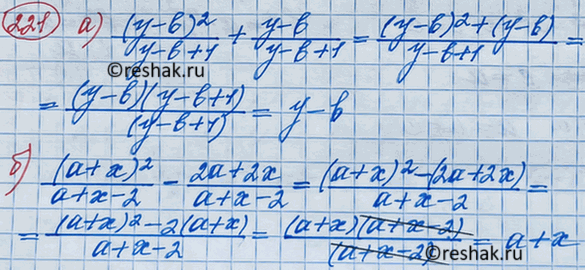 221 а) (y-b)²/(y-b+1) + (y-b)/(y-b+1) = ((y-b)²+(y-b))/(y-b+1) =
©reshak.ru
= ((y-b)(y-b+1))/(y-b+1) = y-b
б) (a+x)²/(a+x-2) - (2a+2x)/(a+x-2) = ((a+x)²-(2a+2x))/(a+x-2) =
= ((a+x)²-2(a+x))/(a+x-2) = ((a+x)(a+x-2))/(a+x-2) = a+x
©reshak.ru